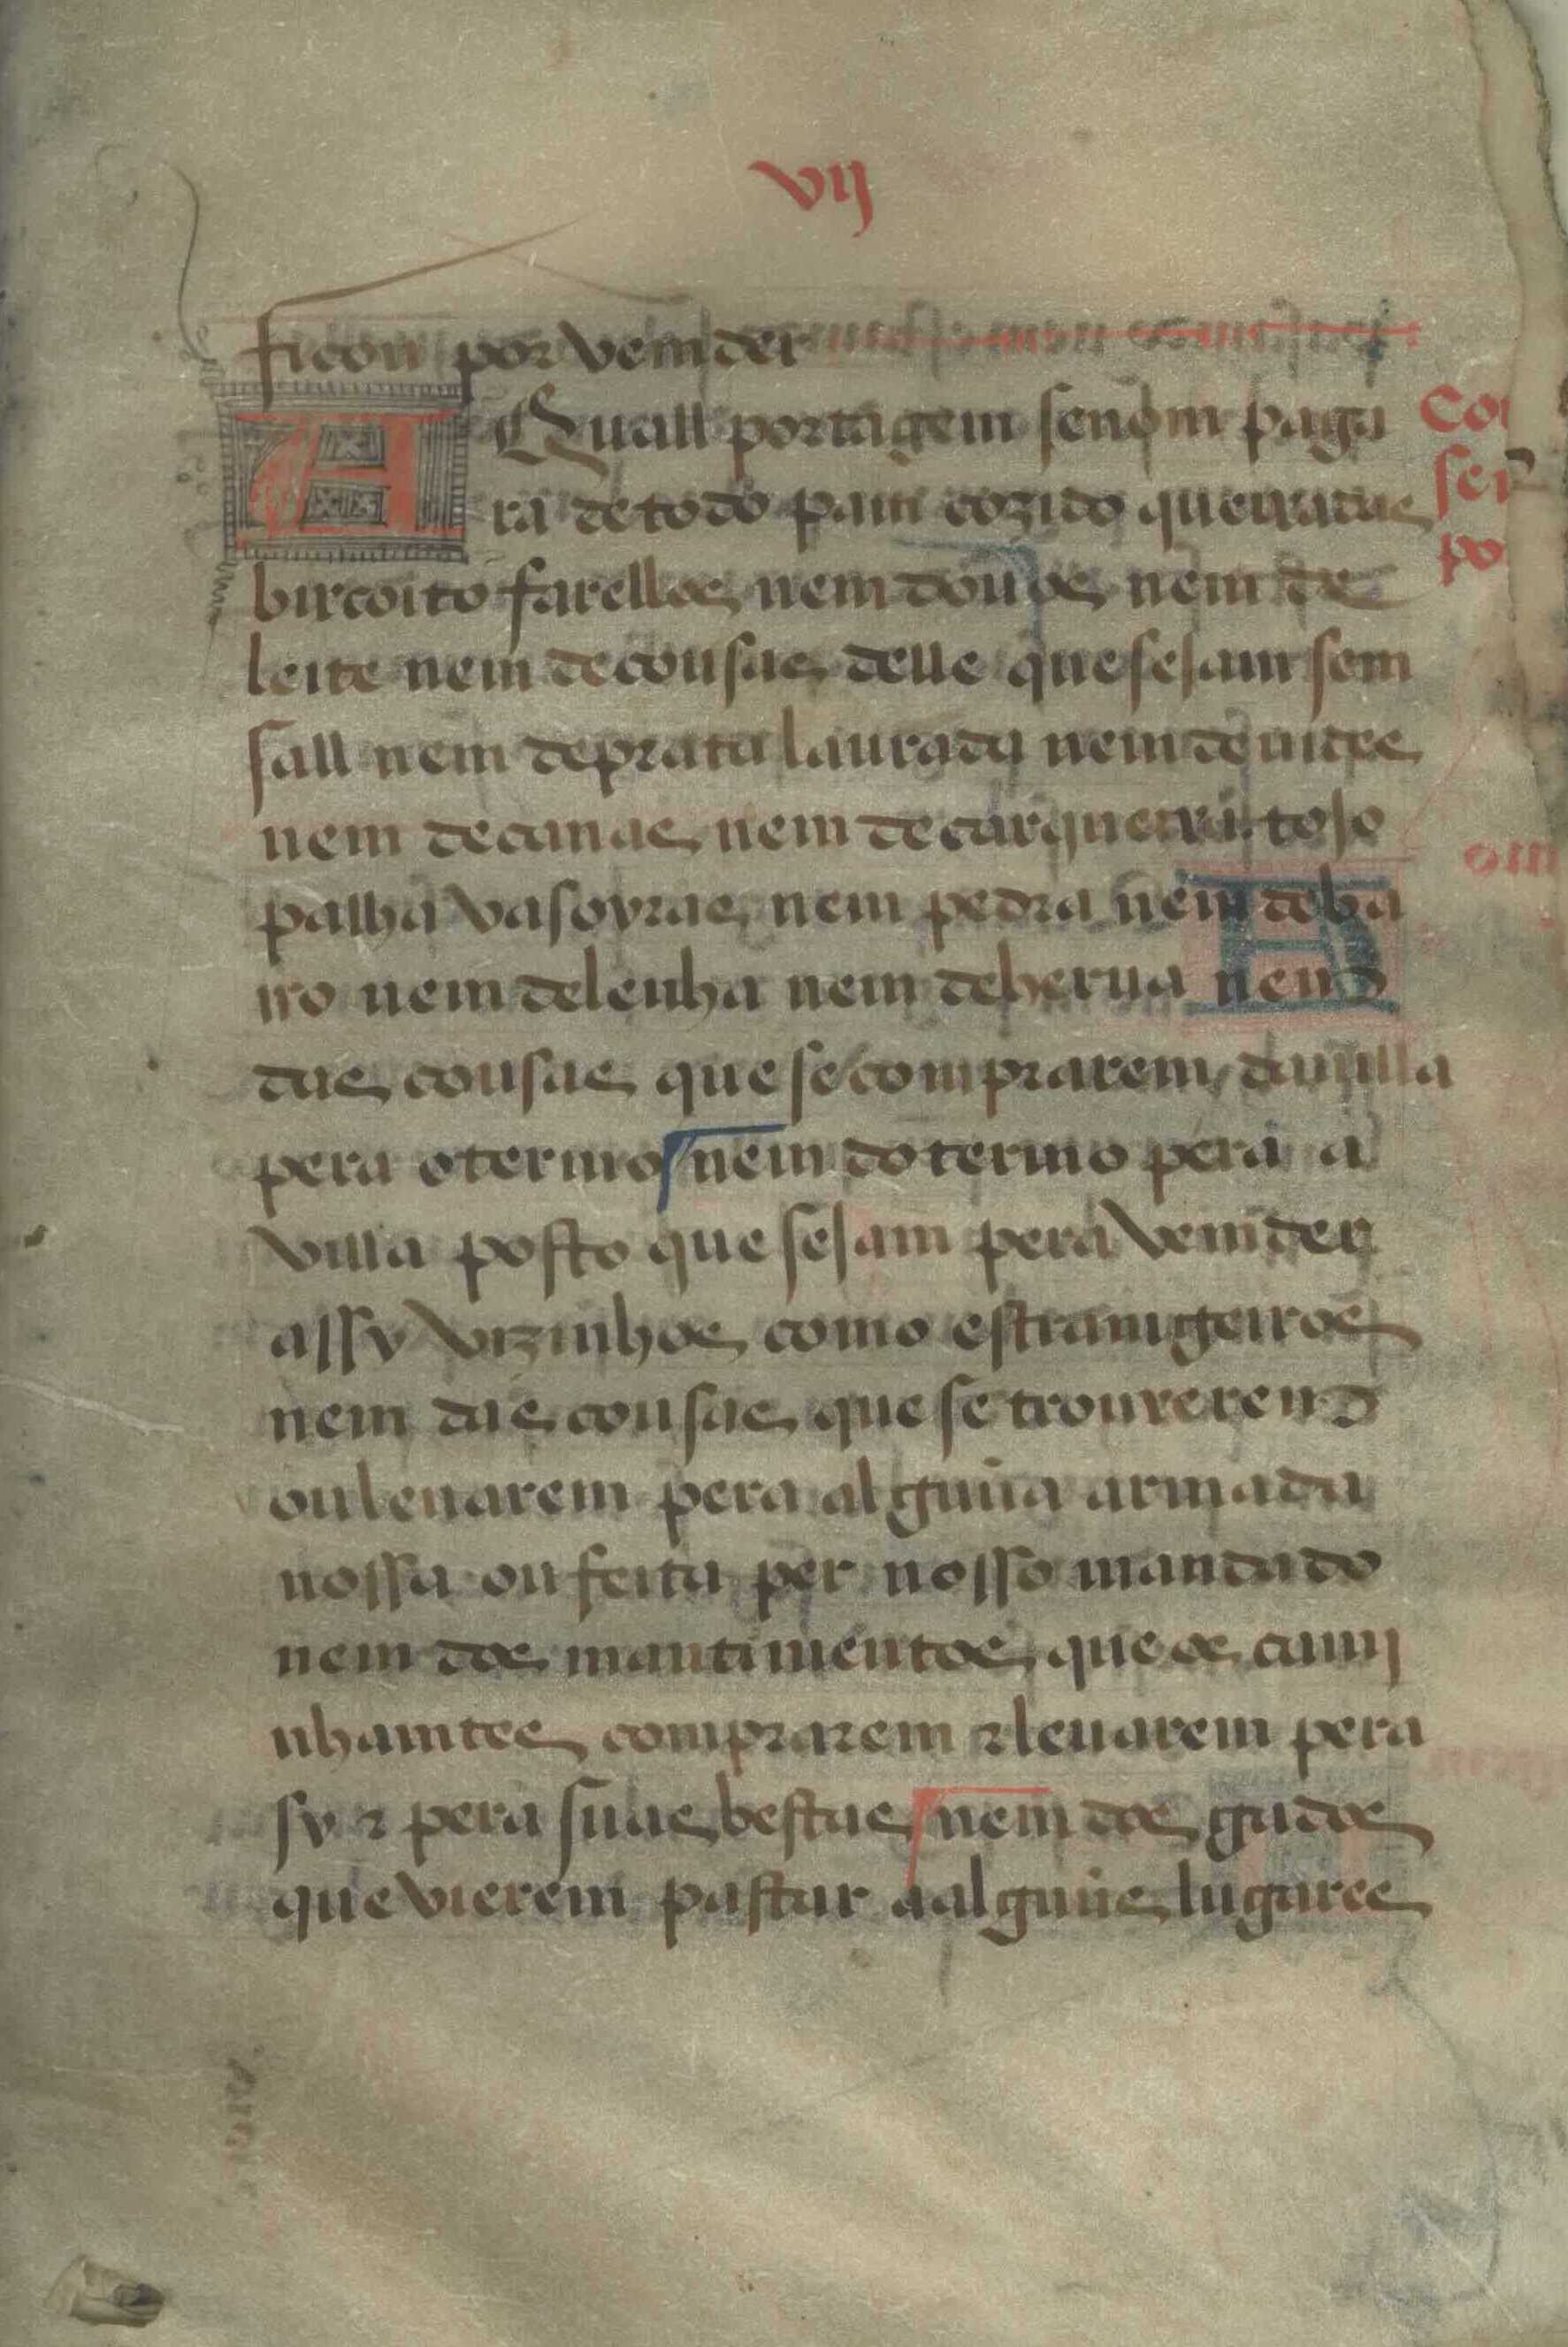 vij
ficou por vemder
A Quall portagem se nom paga
ra de todo pam cozido queijadas
bizcoito farellos nem douos nem de
leite nem de cousas delle que sejam sem
sall nem de prata laurada nem de vides
nem de canas nem de carqueija tojo
palha vasoyras nem pedra nem de ba
rro nem de lenha nem de herua nem
das cousas que se comprarem da villa
pera o termo nem do termo pera a
villa posto que sejam pera vemder
assy vizinhos como estramgeiros
nem das cousas que se trouxerem
ou leuarem pera alguũa armada
nossa ou feita per nosso mandado
nem dos mantimentos que os cami
nhamtes comprarem ⁊ leuarem pera
sy ⁊ pera suas bestas nem dos gados
que vierem pastar a alguũs lugares